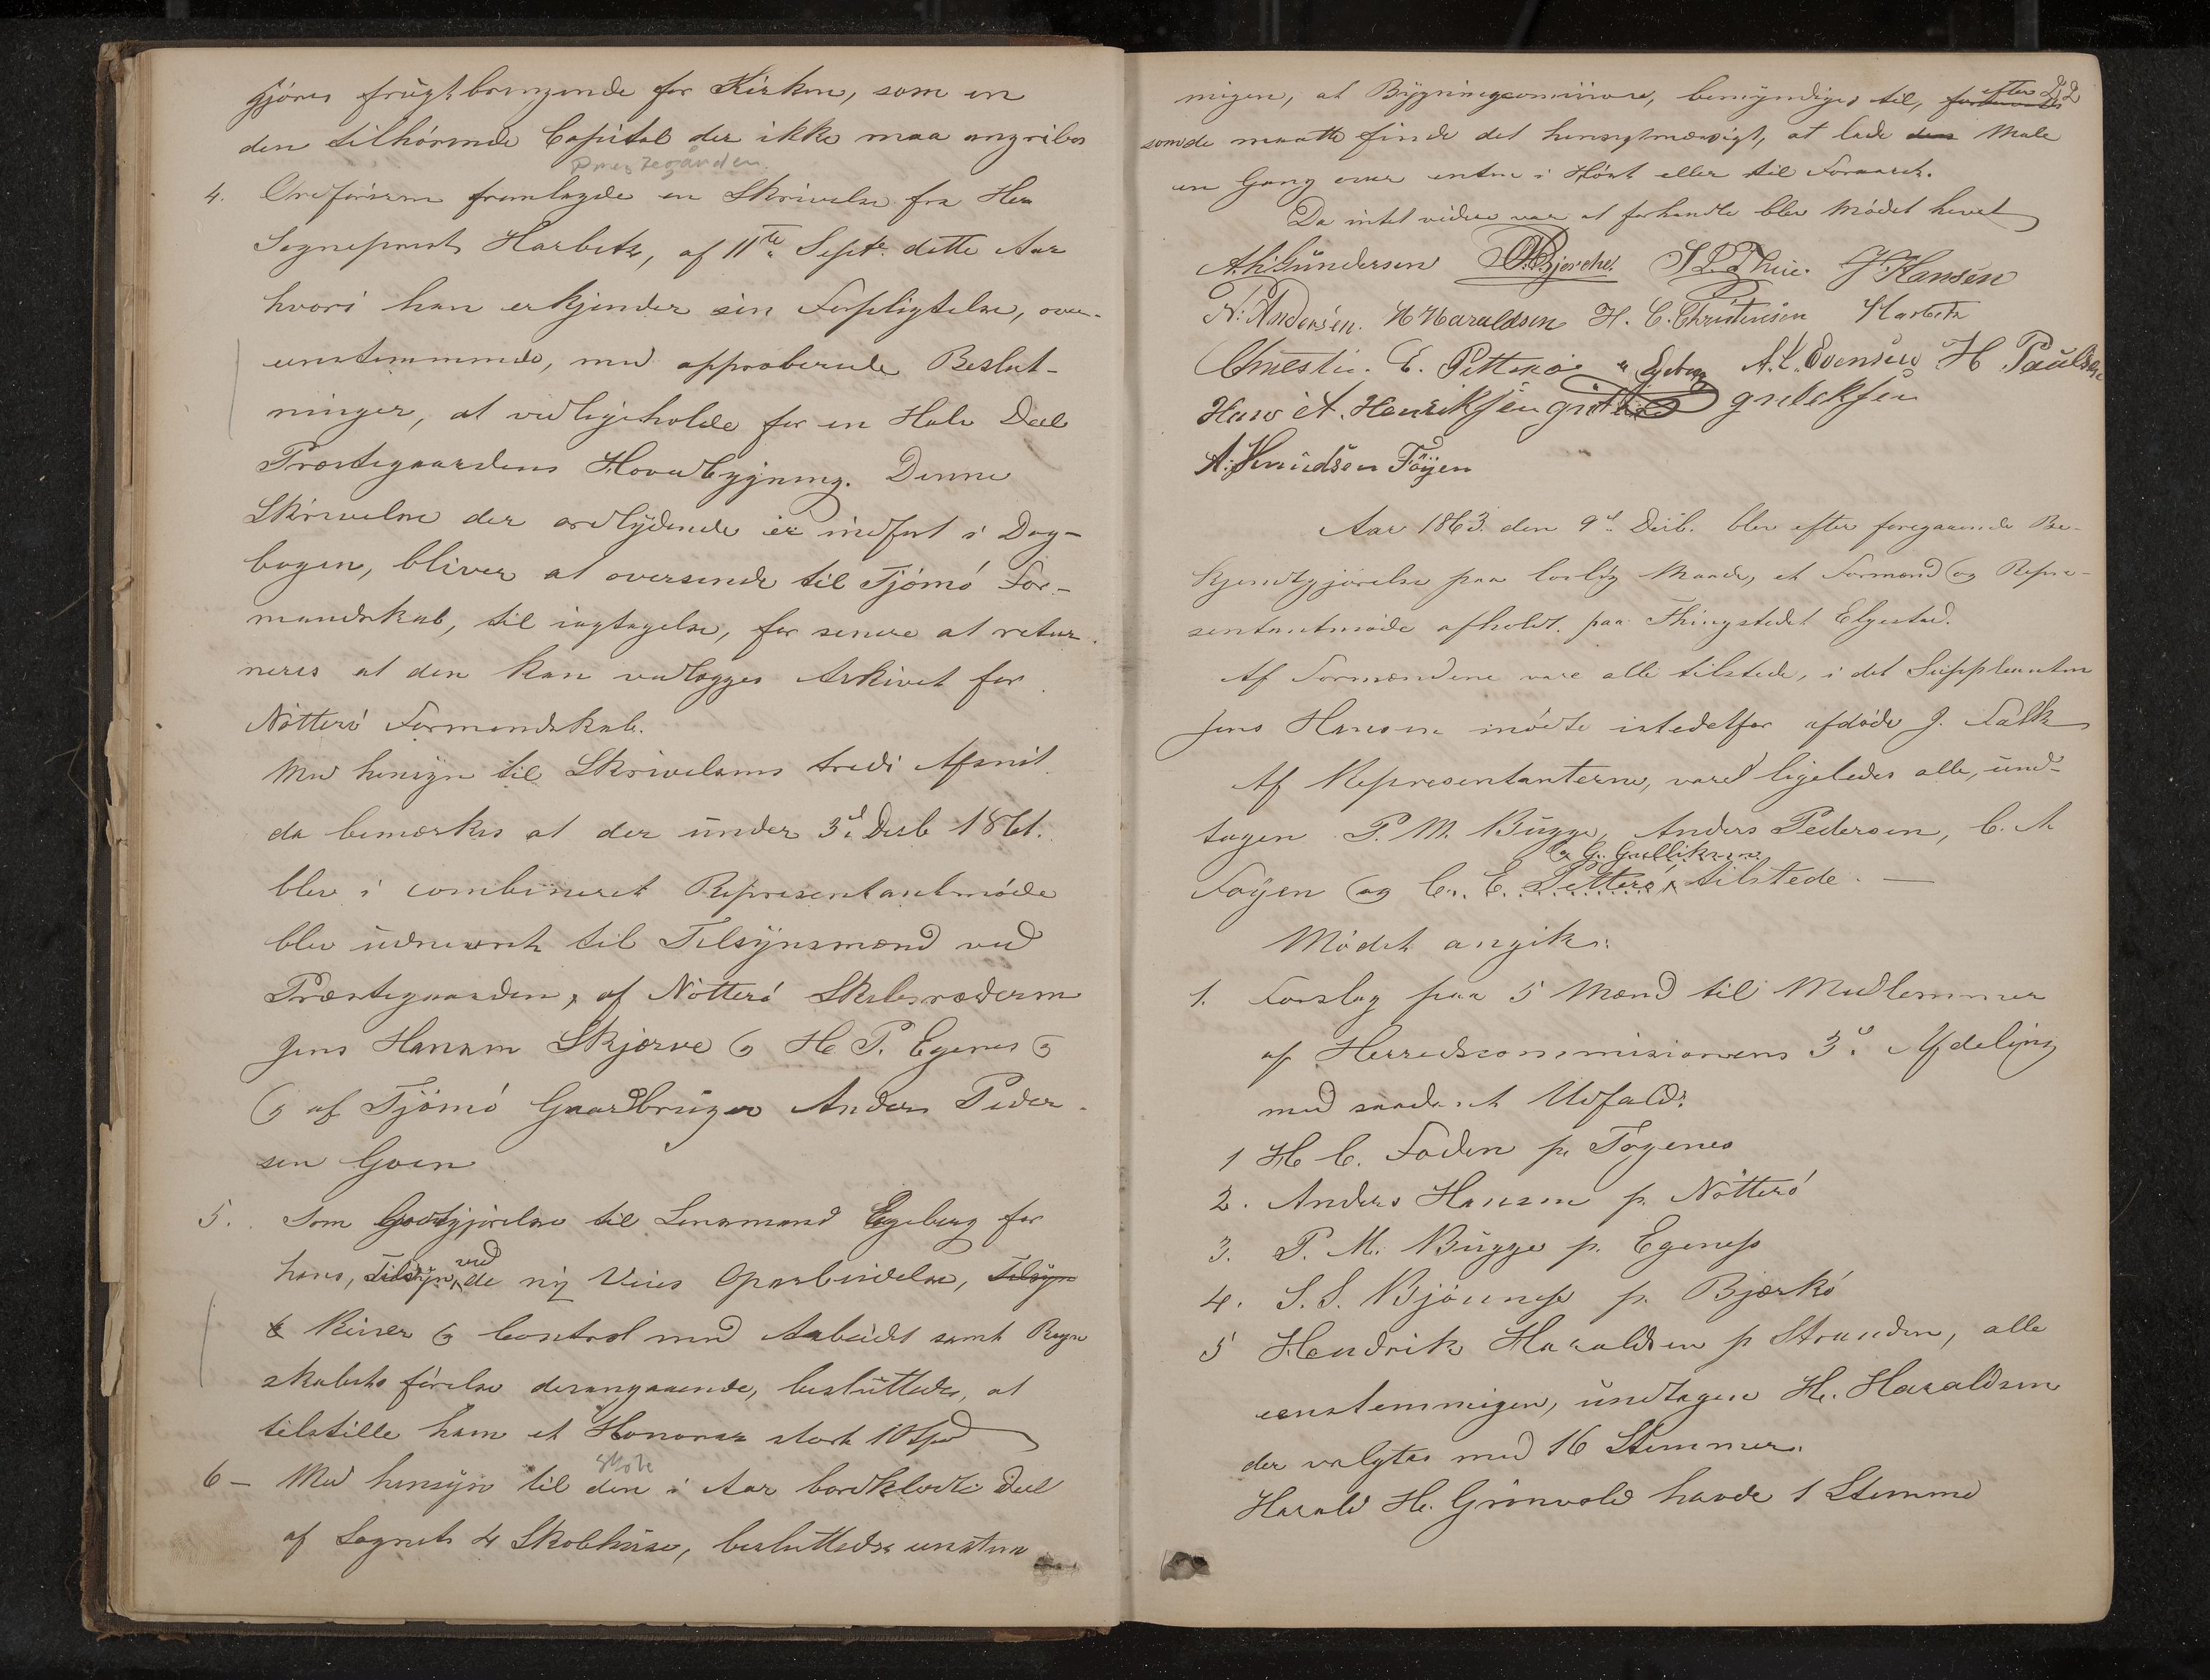 gjöres frugtbringende for Kirken, som en
den tilhörende Capital der ikke maa angribes
Prestegården
4. Ordföreren fremlagde en Skrivelse fra Her
Sogneprest Harbitz, af 11te Septr. dette Aar
hvori han erkjender sin Forpligtelse, over-
eenstemmende, med approberede Beslut-
ninger, at vedligeholde for en Halv Deel
Præstegaardens Hovedbygning. Denne
Skrivelse der ordlydende er indfört i Dag-
bogen, bliver at oversende til Tjömö For-
mandskab, til iagtagelse, for senere at retur-
neres at den kan vedlægges Arkivet for
Nötterö Formandskab.
Med hensyn til Skrivelsens tredi Afsnit
da bemærkes at der under 3d Desb 1861.
blev i combineret Representantmöde
blev udnævnt til Tilsynsmænd ved
Præstegaarden, af Nötterö Skibsrederne
Jens Hansen Skjerve og H. P. Egenes
og af Tjömö Gaardbruger Anders Peder-
sen Goen
5. Som Godtgjörelse til Lensmand Egeberg for
hans, Tilsyn ved de ny Veies Oparbeidelse, Tilsyn
Reiser og Control med Arbeidet samt Regn
skabets förelse desangaaende, besluttedes, at
tilstille ham et Honorar stort 10 Spd
Skole
6 – Med hensyn til den i Aar bordklædte Deel
af Sognets 4 Skolehuse, besluttedes eenstem
22
migen, at Bygningscommisionen, bemyndiges til, efter
som de maatte finde det hensigtmæssigt, at lade den Male
en Gang over enten i Höst eller til Foraaret.
Da intet videre var at forhandle blev Mödet hevet
A.H. Gundersen O.B. Bjerche. S L. Thue. J Hansen
N. Andersen. H Haraldsen H. C. Christensen Harbitz
E. Petterö Egeberg A. L. Evensen H Paulsen
Hans A. Henriksen
A. Knudsen Föyen
Aar 1863 den 9d Desb. blev efter foregaaende Be-
kjendtgjörelse paa lovlig Maade, et Formænd og Repre-
sentantmöde afholdt paa Thingstedet Elgestad.
Af Formændene vare alle tilstede, i det Suppleanten
Jens Hansen mödte istedetfor afdöde J. Falk
Af Representanterne, vare ligeledes alle, und-
tagen P. M. Bugge, Anders Pedersen, C. A
og G. Gulliksen
Föyen og C. E. Petterö, tilstede. —
Mödet angik:
1. Forslag paa 5 Mænd til Medlemmer
af Herredscommisionens 3d Afdeling
med saadant Udfald:
1 H C. Foden p. Togenes
2. Anders Hansen p. Nötterö
3. P. M. Bugge p. Egeness
4. S. S. Bjönness p. Bjerkö
5 Hendrik Haraldsen p Stranden, alle
eenstemmigen, undtagen H. Haraldsen
der valgtes med 16 Stemmer.
Harald H. Grönvold havde 1 Stemme